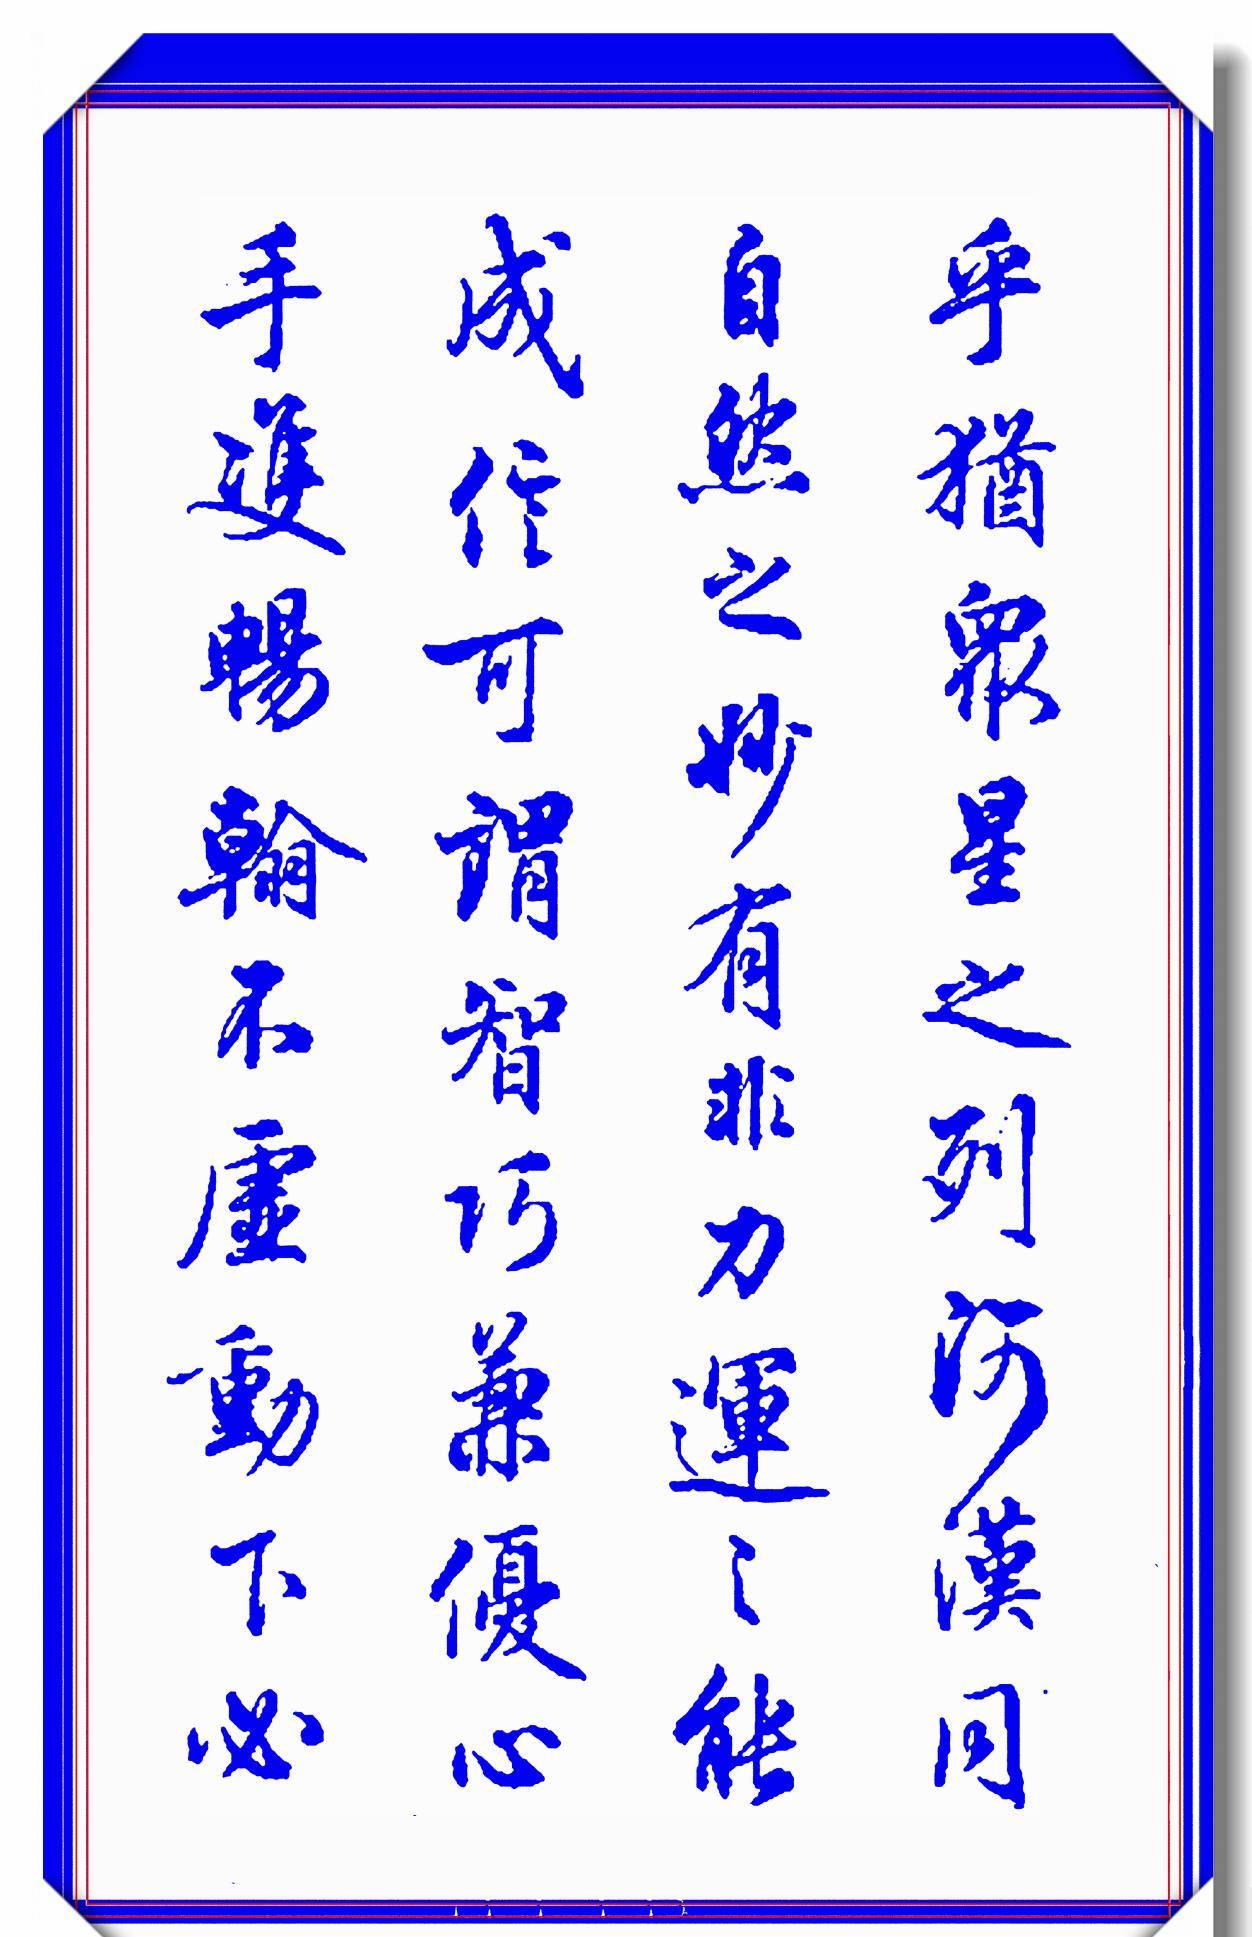 乎猶衆星之列河漢同
自然之妙有非力運之能
成信可謂智巧兼優心
手雙暢翰不虛動下必